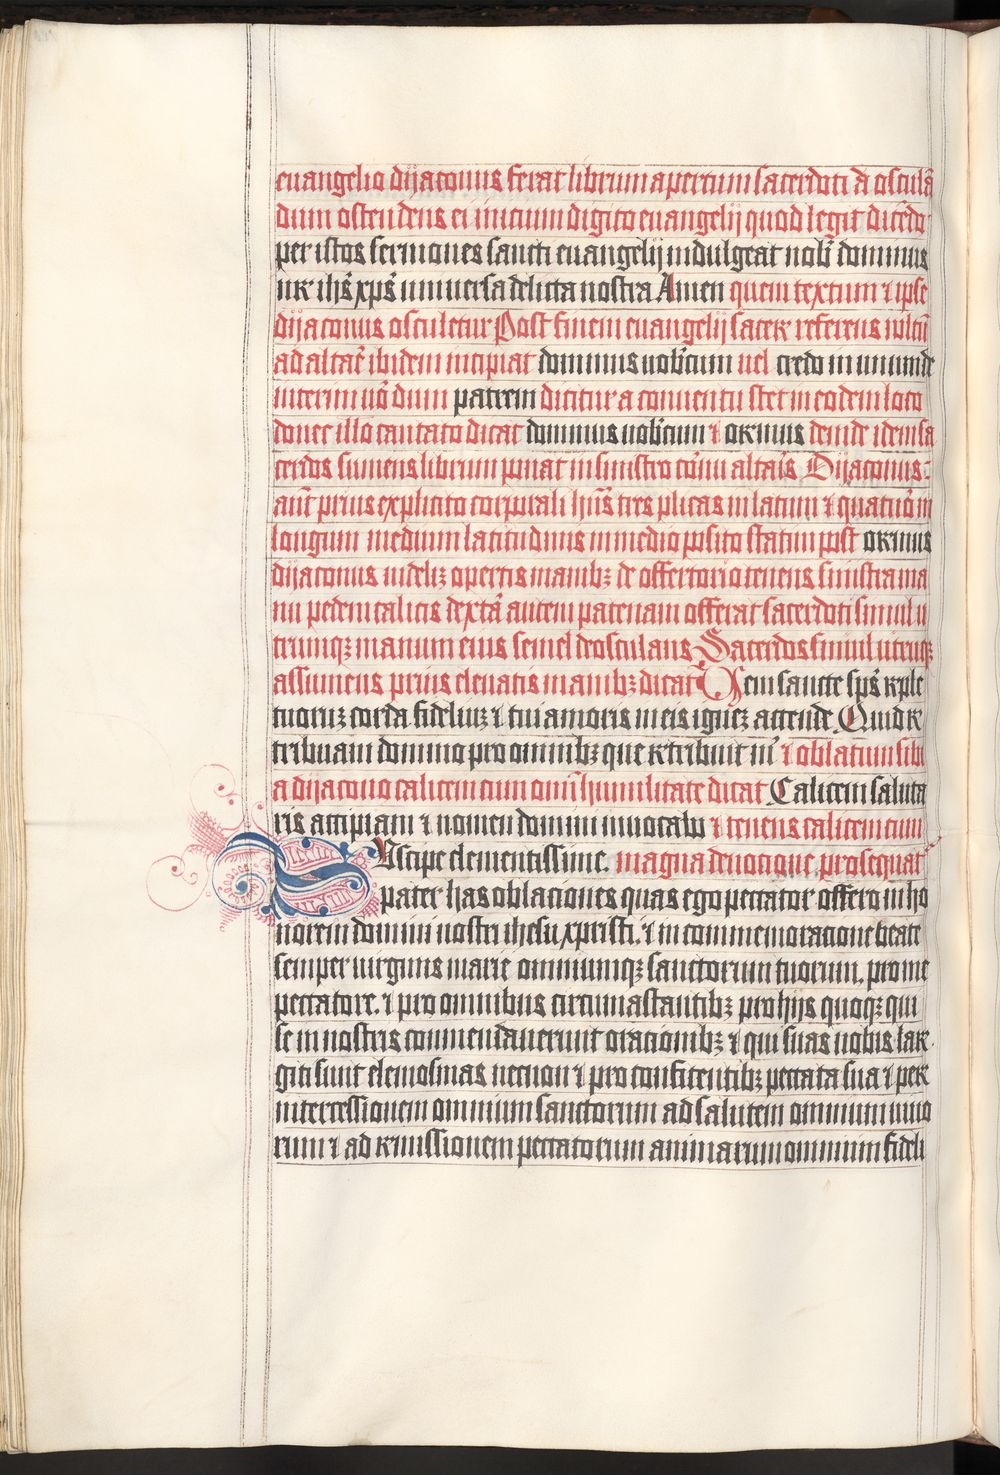 euangelio dyaconus ferat librum apertum sacerdoti ad osculā
dum ostendens ei inicium digito euangelij quod legit dicēdo
per istos sermones sancti euangelij indulgeat nob̄ dominus
nr̄ ihs̄ xps̄ uniuersa delicta nostra Amen quem textum ⁊ ipse
dyaconus osculetur Post finem euangelij sacer referens uultū
ad altar̄ ibidem incipiat dominus uob̄cum uel credo in unum de
interim uō dum patrem dicitur a conuentu stet in eodem loco
donec illo cantato dicat dominus uob̄cum ⁊ oremus deinde idem sa
cerdos sumens librum ponat in sinistro cōnu altar̄s Dyaconus
aut̄ prius explicito corporali hn̄s tres plicas in latum ⁊ quatuor̄ in
longum medium latitudinis in medio posito statim post oremus
dyaconus uidelicꝫ opertis manibꝫ de offertorio tenens sinistra ma
nu pedem calicis dextā autem patenam offerat sacerdoti simul u
trumqꝫ manum eius semel deosculans Sacerdos simul utrumqꝫ
assumens prius eleuatis manibꝫ dicat Ueni sancte sps̄ reple
tuorum corda fidelium ⁊ tui amoris in eis ignem accende Quid re
tribuam domino pro omnibꝫ que retribuit m̄ ⁊ oblatum sibi
a dyacono calicem cum om̄i humilitate dicat Calicem saluta
ris accipiam ⁊ nomen domini inuocabo ⁊ tenens calicem cum
Suscipe clementissime. magna deuotione prosequat
pater has oblationes quas ego peccator offero in ho
norem domini nostri ihesu xpristi. ⁊ in commemoracione beate
semper uirginis marie omniumqꝫ sanctorum tuorum. pro me
peccatore. ⁊ pro omnibus circumastantibꝫ pro hijs quoqꝫ qui
se in nostris commendauerunt oracionibꝫ ⁊ qui suas nobis lar
giti sunt elemosinas necnon ⁊ pro confitentibꝫ peccata sua ⁊ per
intercessionem omnium sanctorum ad salutem omnium uiuo
rum ⁊ ad remissionem peccatorum animarum omnium fideli